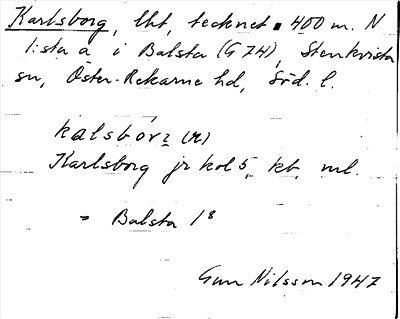 Karlsborg, lht, tecknet ▪ 400 m. N
1:sta a i Balsta (G 74), Stenkvista
sn, Öster-Rekarne hd, Söd. l.
kalsbórꞩ (ɴ)
Karlsborg jr kol 5, kt, ml.
= Balsta 1⁸
Gun Nilsson 1947